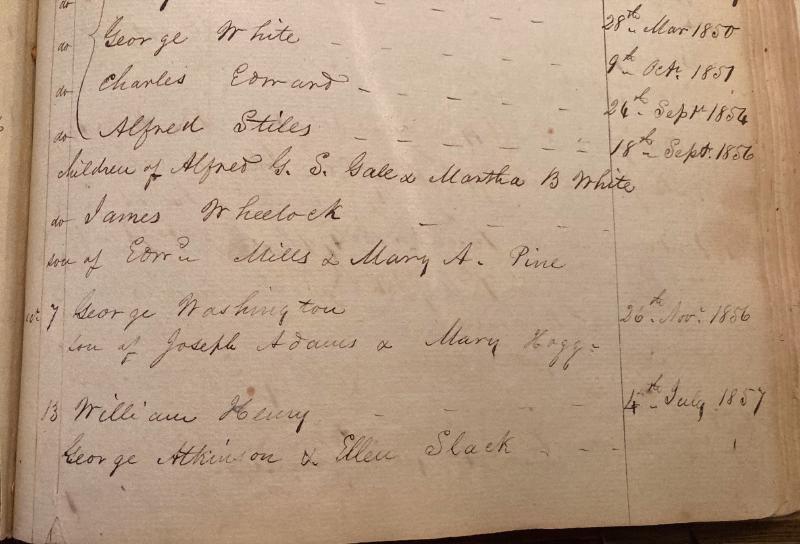 do
do George White - - - - - 28th Mar 1850
do Charles Edward - - - - - 9th Octr. 1851
do Alfred Stiles - - - - - 24th Septr 1854
18th Septr. 1856
children of Alfred G. S. Gale & Martha B White
do James Wheelock - - - -
son of Edwd. Mills & Mary A. Pine
7 George Washington 26th Novr. 1856
son of Joseph Adams & Mary Hogg -
13 William Henry - - - - 4th July 1857
George Atkinson & Ellen Slack - - -